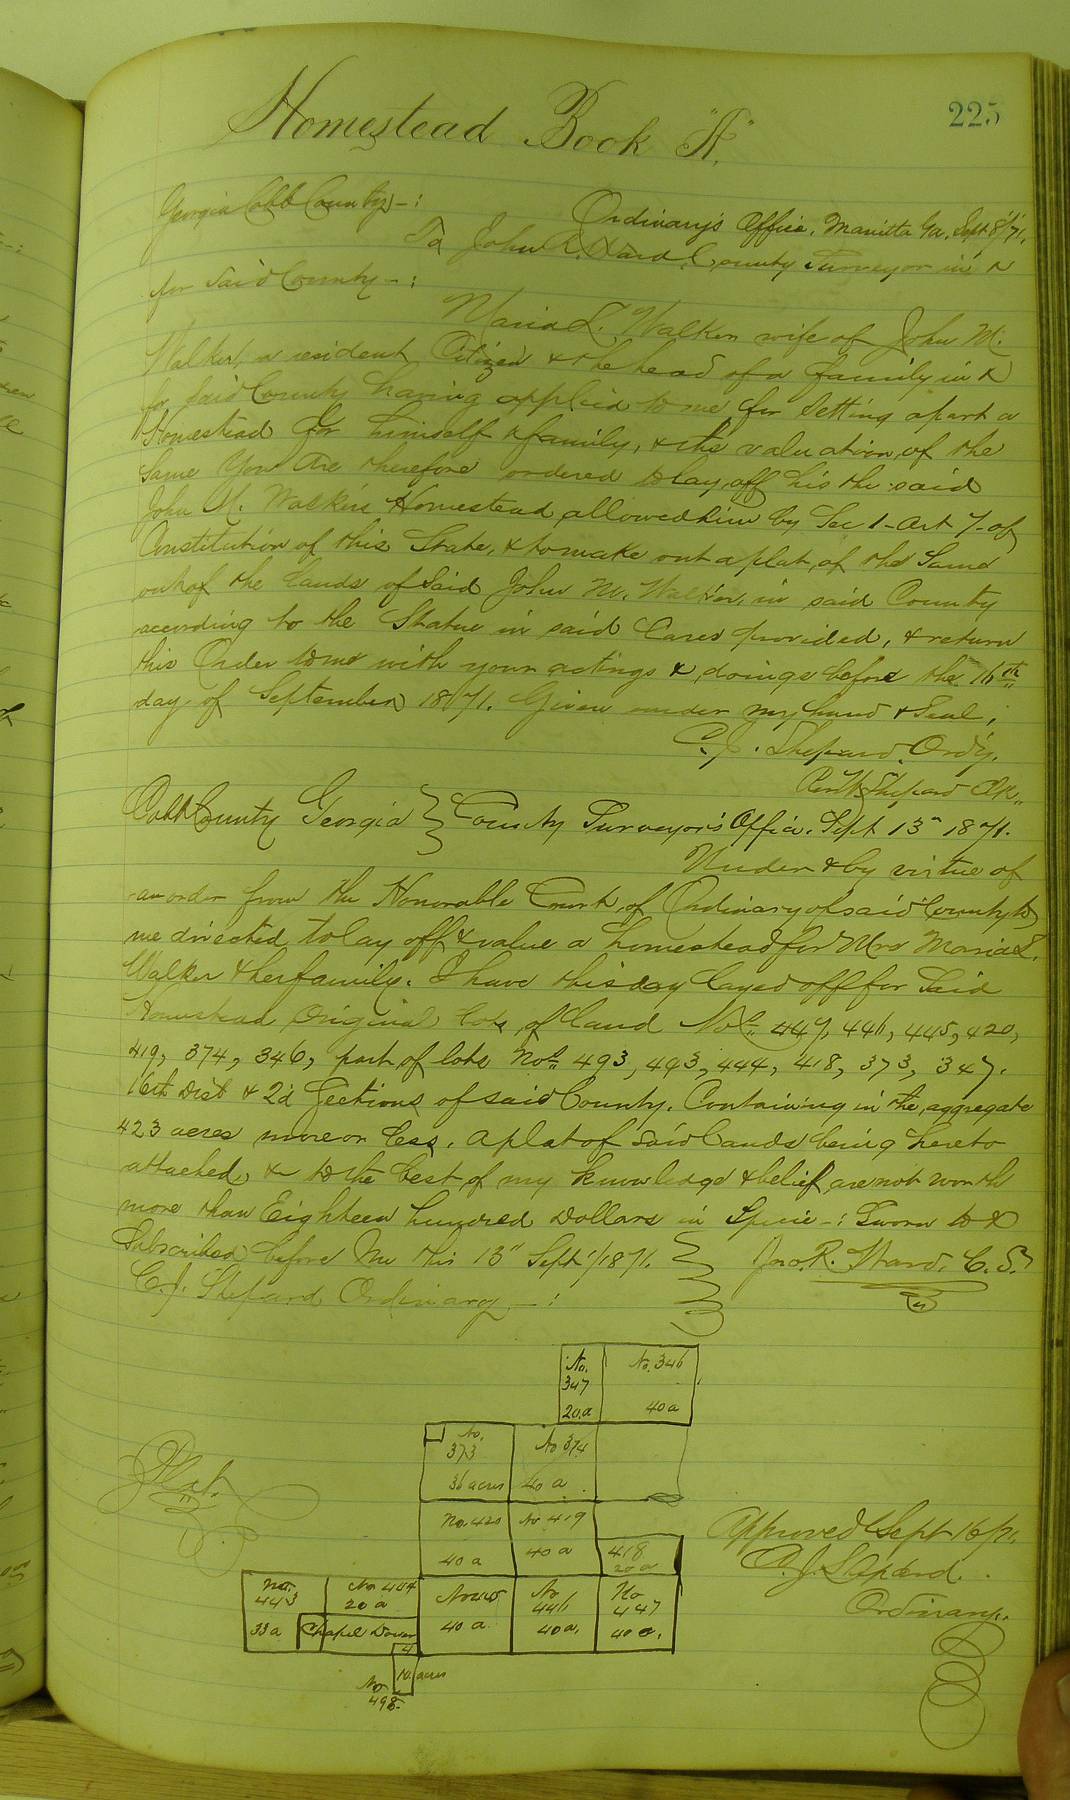 225
Homestead Book "A"
Georgia Cobb County -:
Ordinary's Office, Marietta Ga. Sept 8"/71,
To John R. Ward County Surveyor in &
for said County -:
Maria L. Walker wife of John M.
Walker, a resident Citizen & the head of a family in &
for said County having applied to me for setting apart a
Homestead for himself & family, & the valuation of the
same You are therefore ordered to lay off his the said
John M. Walkers Homestead allowed him by Sec 1 - Art 7 - of
Constitution of this State, & to make out a plat, of the same
out of the lands of said John M. Walker, in said County
according to the Statue in said Cases provided, & return
this Order to me with your actings & doings before the 16th
day of September 1871. Given under my hand & Seal,
C. J. Shepard Ord'y.
Shepard
Cobb County Georgia } County Surveyor's Office, Sept 13" 1871.
Under & by virtue of
an order from the Honorable Court of Ordinary of said County to
me directed, to lay off & value a homestead for Mrs Maria L.
Walker & her family. I have this day layed off for said
Homestead Original lots of land Nos 447, 446, 445, 420,
419, 374, 346, part of lots Nos 493, 443, 444, 418, 373, 347.
16th Dist & 2d Sections of said County. Containing in the aggregate
423 acres more or less. a plat of said lands being hereto
attached, & to the best of my knowledge & belief, are not worth
more than Eighteen hundred Dollars in Specie -: Sworn to &
Subscribed before me this 13" Sept 1871. } Jno. R. Ward, C. S.
C. J. Shepard Ordinary -:
No. 347 20.a
No. 346 40 a
No. 373 36 acres
No 374 40 a
Plat.
No. 420 40 a
No 419 40 a
418 20 a
Approved Sept 16/71,
C. J. Shepard
Ordinary.
No. 443 33 a
No 444 20 a
Chapel Dower
No 445 40 a
No 446 40 a,
No 447 40 a.
4
10 acres
No 498